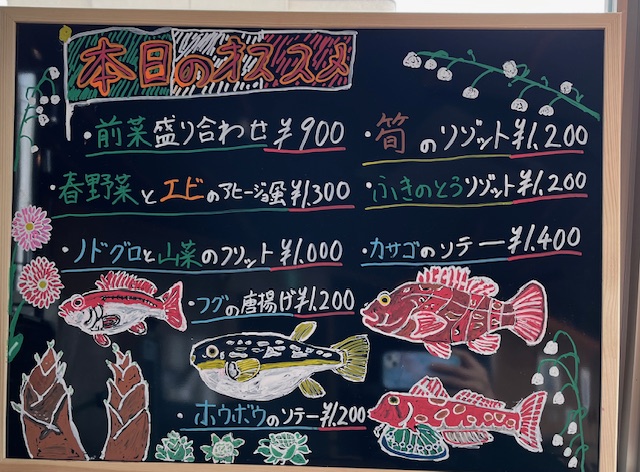 本日のオススメ
・前菜盛り合わせ ¥900
・春野菜とエビのアヒージョ風 ¥1,300
・ノドグロと山菜のフリット ¥1,000
・フグの唐揚げ ¥1,200
・ホウボウのソテー ¥1,200
・筍のリゾット ¥1,200
・ふきのとうリゾット ¥1,200
・カサゴのソテー ¥1,400